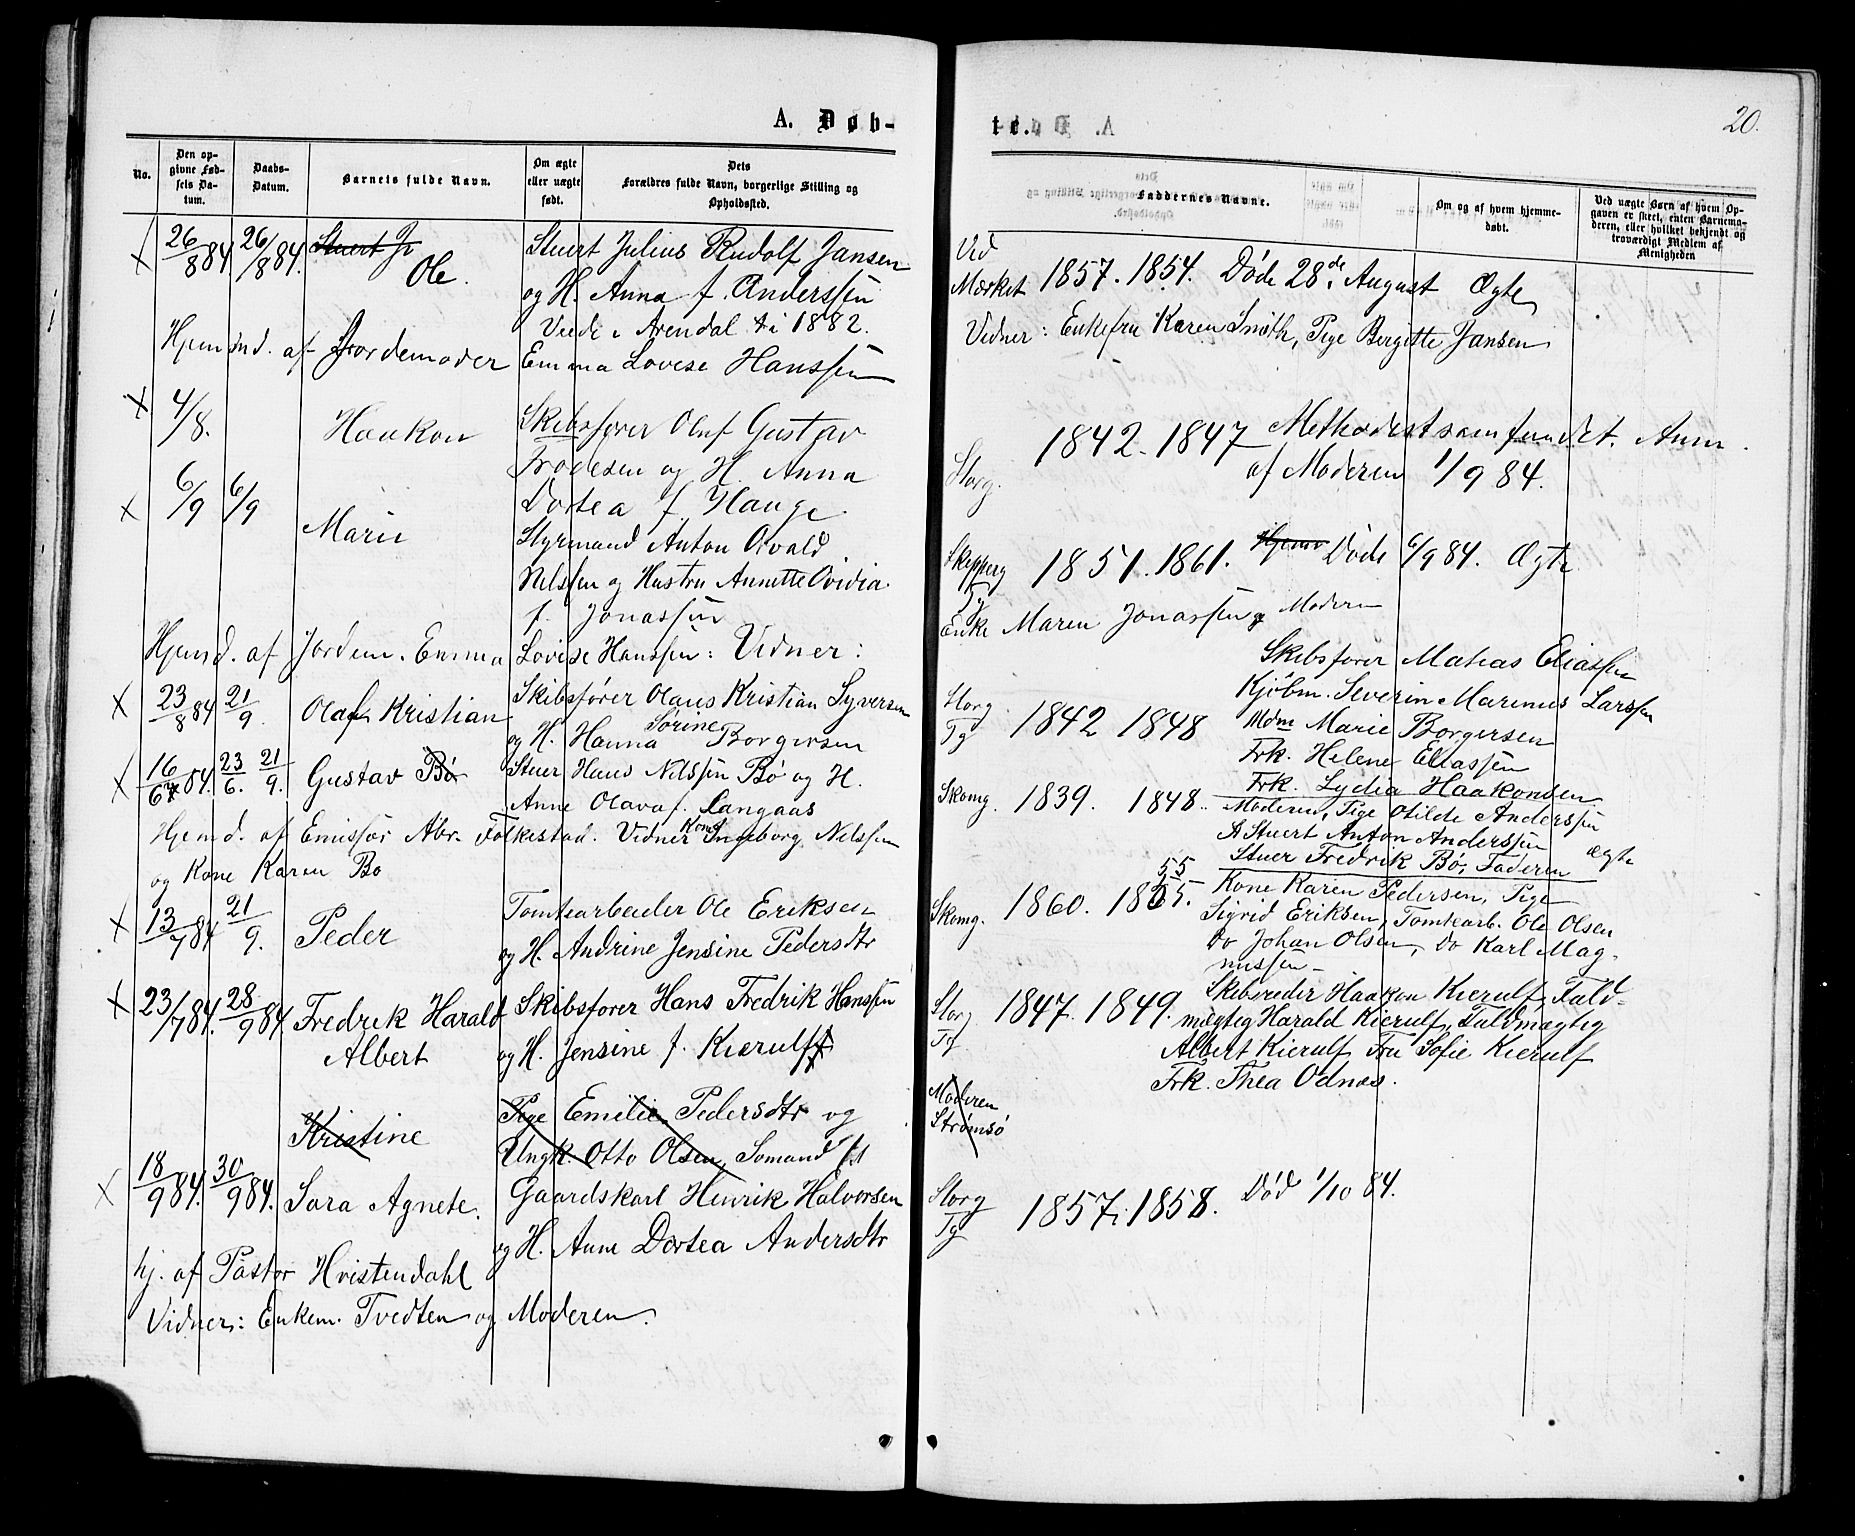 A. Døb-
No.
Den op-
givne Fød-
sels Da-
tum.
Daabs-
Datum.
Barnets fulde Navn.
Om ægte
eller uægte
født.
Dets
Forældres fulde Navn, borgerlige Stilling og
Opholdssted.
26/8 84 26/8 84. Stuert Jr
Ole.
Stuert Julius Rudolf Jansen
og H. Anna f. Anderssen
Viede i Arendal i 1882.
Hjemmd. af Jordemoder Emma Lovise Hanssen
4/8. Haakon
Skibsfører Oluf Gustav
Frodesen og H. Anna
Dortea f Hauge.
6/9 6/9 Marie
Styrmand Anton Osvald
Nelssen og Hustru Annette Ovidia
f. Jonassen
Hjemd. af Jordem. Emma Lovise Hanssen: Vidner:
23/8 84 21/9. Olaf Kristian
Skibsfører Olaus Kristian Syversen
og H. Hanna Sørine Borgersen
16/6 84. 23/6. 21/9. Gustav Bø
Stuer Hans Nilssen Bø og H.
Anne Olava f. Langaas
Hjemd. af Emissør Abr. Folkestad. Vidner Kone Ingeborg Nelssen
og Kone Karen Bø
13/7 84 21/9. Peder
Tomtearbeider Ole Eriksen
og H. Andrine Jensine Pedersdtr
23/7 84. 28/9 84 Fredrik Harald
Albert
Skibsfører Hans Fredrik Hanssen
og H. Jensine f. Kierulf
Kristine
Pige Emilie Pedersdtr og
Ungk. Otto Olsen, Sømand
18/9 84. 30/9 84. Sara Agnete.
Gaardskarl Henrik Halvorsen
og H. Anne Dortea Andersdtr
hj. af Pastor Hvistendahl
Vidner: Enkem. Tvedten og Moderen.
te.
20.
Faddernes Navne.
Om og af hvem hjemme-
døbt.
Ved uægte Børn af hvem Op-
gaven er skeet, enten Barnemo-
deren, eller hvilket bekjendt og
troværdigt Medlem af
Menigheden
Ved
Mærket 1857. 1854. Døde 28de August Ægte
Vidner: Enkefru Karen Smith, Pige Bergitte Jansen
Storg. 1842. 1847 Methodistsamfundet. Anm.
af Moderen 1/9 84.
Skipperg 1851. 1861. Hjemd Døde 6/9 84. Ægte
Enke Maren Jonassen og Moderen
Storg
Tg 1842 1848
Skibsfører Matias Eliassen
Kjøbm. Severin Marinus Larssen
Mdm Marie Borgersen
Frk. Helene Eliassen
Frk. Lydia Haakonsen
Skomg. 1839. 1848.
Moderen, Pige Otilde Anderssen
Stuert Anton Anderssen ægte
Stuer Fredrik Bø, Faderen
Skomg. 1860. 1865. 55
Kone Karen Pedersen, Pige
Sigrid Eriksen, Tomtearb. Ole Olsen
Do Johan Olsen, Do Karl Mag-
nussen
Storg
Tg 1847. 1849.
Skibsreder Haakon Kierulf, Fuld-
mægtig Harald Kierulf, Fuldmægtig
Albert Kierulf, Fru Sofie Kierulf
Frk. Thea Odnæs.
Moderen
Strømsø
Storg
Tg 1857. 1858. Død 1/10 84.